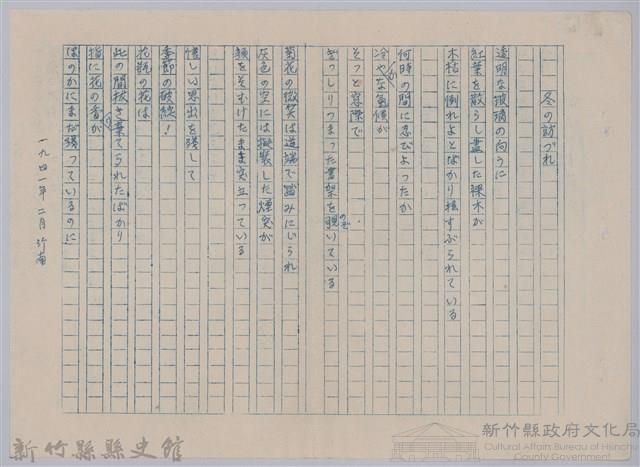 冬の訪づれ
透明な玻璃の向うに
紅葉を散らし盡した裸木が
木枯に倒れよとばかり揺すぶられている
何時の間に忍びよったか
冷やかな気候が
そっと窓際で
ぎっしりつまった書架を覗いている
のぞ
菊花の微笑は道端で踏みにじられ
灰色の空には擬裝した煙突が
顔をそむけたまま突立っている
惜しい思出を残して
季節の破綻!
花瓶の花は
此の間抜き棄てられたばかり
指に花の香が
ほのかにまだ残っているのに
一九四一年二月 於南
新竹縣縣史館
新竹縣政府文化局
Cultural Affairs Bureau of Hsinchu
County Government